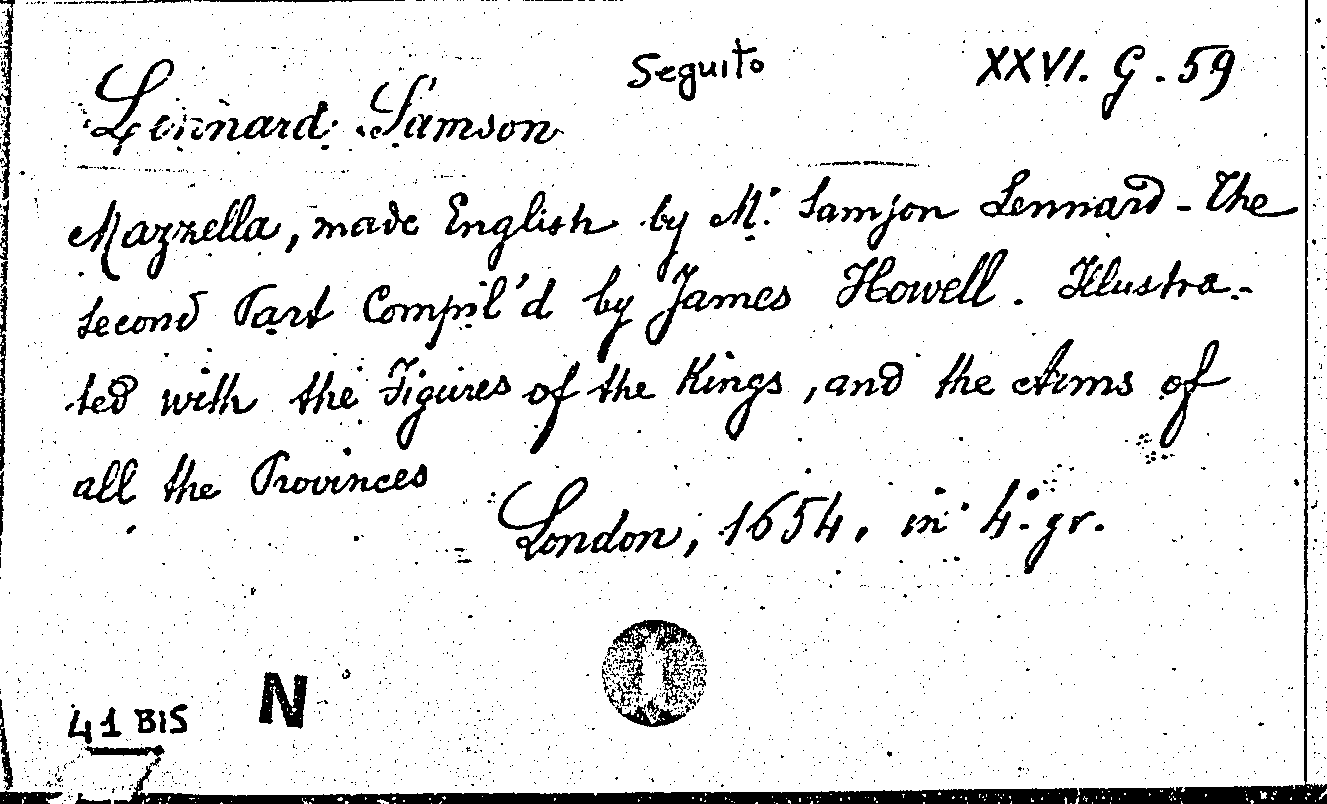 Seguito XXVI. G. 59
Lennard Samson
Mazzella, made English by Mr. Samson Lennard - The
second Part Compil'd by James Howell. Illustra-
ted with the Figures of the Kings, and the Arms of
all the Provinces
London, 1654. in 4.° gr.
N
41 BIS